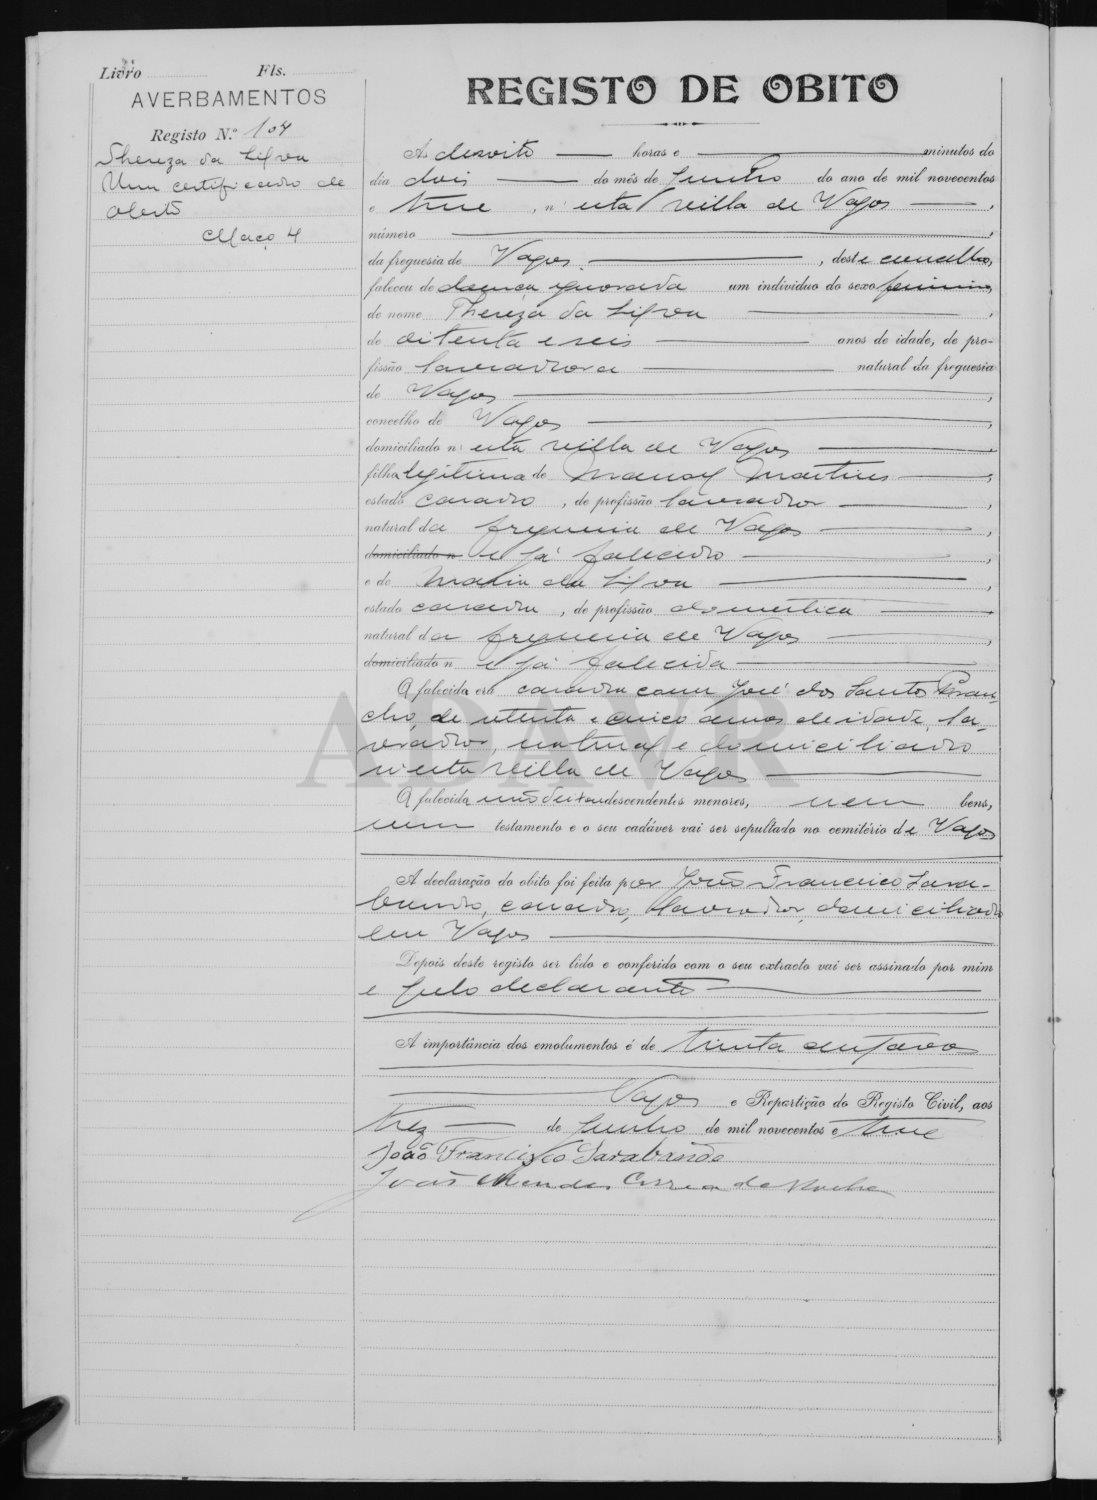 Livro Fls.
AVERBAMENTOS
Registo N.º 104
Thereza da Silva
Um certificado de
obito
Maço 4
REGISTO DE OBITO
Ás desoito horas e minutos do
dia dois do mês de Junho do ano de mil novecentos
e treze, n'esta villa de Vagos,
número
da freguesia de Vagos, deste concelho,
faleceu de doença ignorada um individuo do sexo feminino,
de nome Thereza da Silva,
de oitenta e seis anos de idade, de pro-
fissão lavradora natural da freguesia
de Vagos,
concelho de Vagos,
domiciliado n'esta villa de Vagos,
filha legitima de Manoel Martins,
estado casado, de profissão lavrador,
natural da freguesia de Vagos,
domiciliado n e já falecido,
e de Maria da Silva,
estado casada, de profissão domestica,
natural da freguesia de Vagos,
domiciliado n e já falecida
A falecida era casada com José dos Santos
de setenta e cinco annos de idade, la-
vrador, natural e domiciliado
n'esta villa de Vagos
A falecida não deixou descendentes menores, nem bens,
nem testamento e o seu cadáver vai ser sepultado no cemitério de Vagos
A declaração do obito foi feita por João Francisco Sara-
bando, casado, lavrador, domiciliado
em Vagos
Depois deste registo ser lido e conferido com o seu extracto vai ser assinado por mim
e pelo declarante
A importância dos emolumentos é de trinta centavos
Vagos e Repartição do Registo Civil, aos
trez de Junho de mil novecentos e treze
João Francisco Sarabando
João Mendes Correia da Rocha
ADAVR